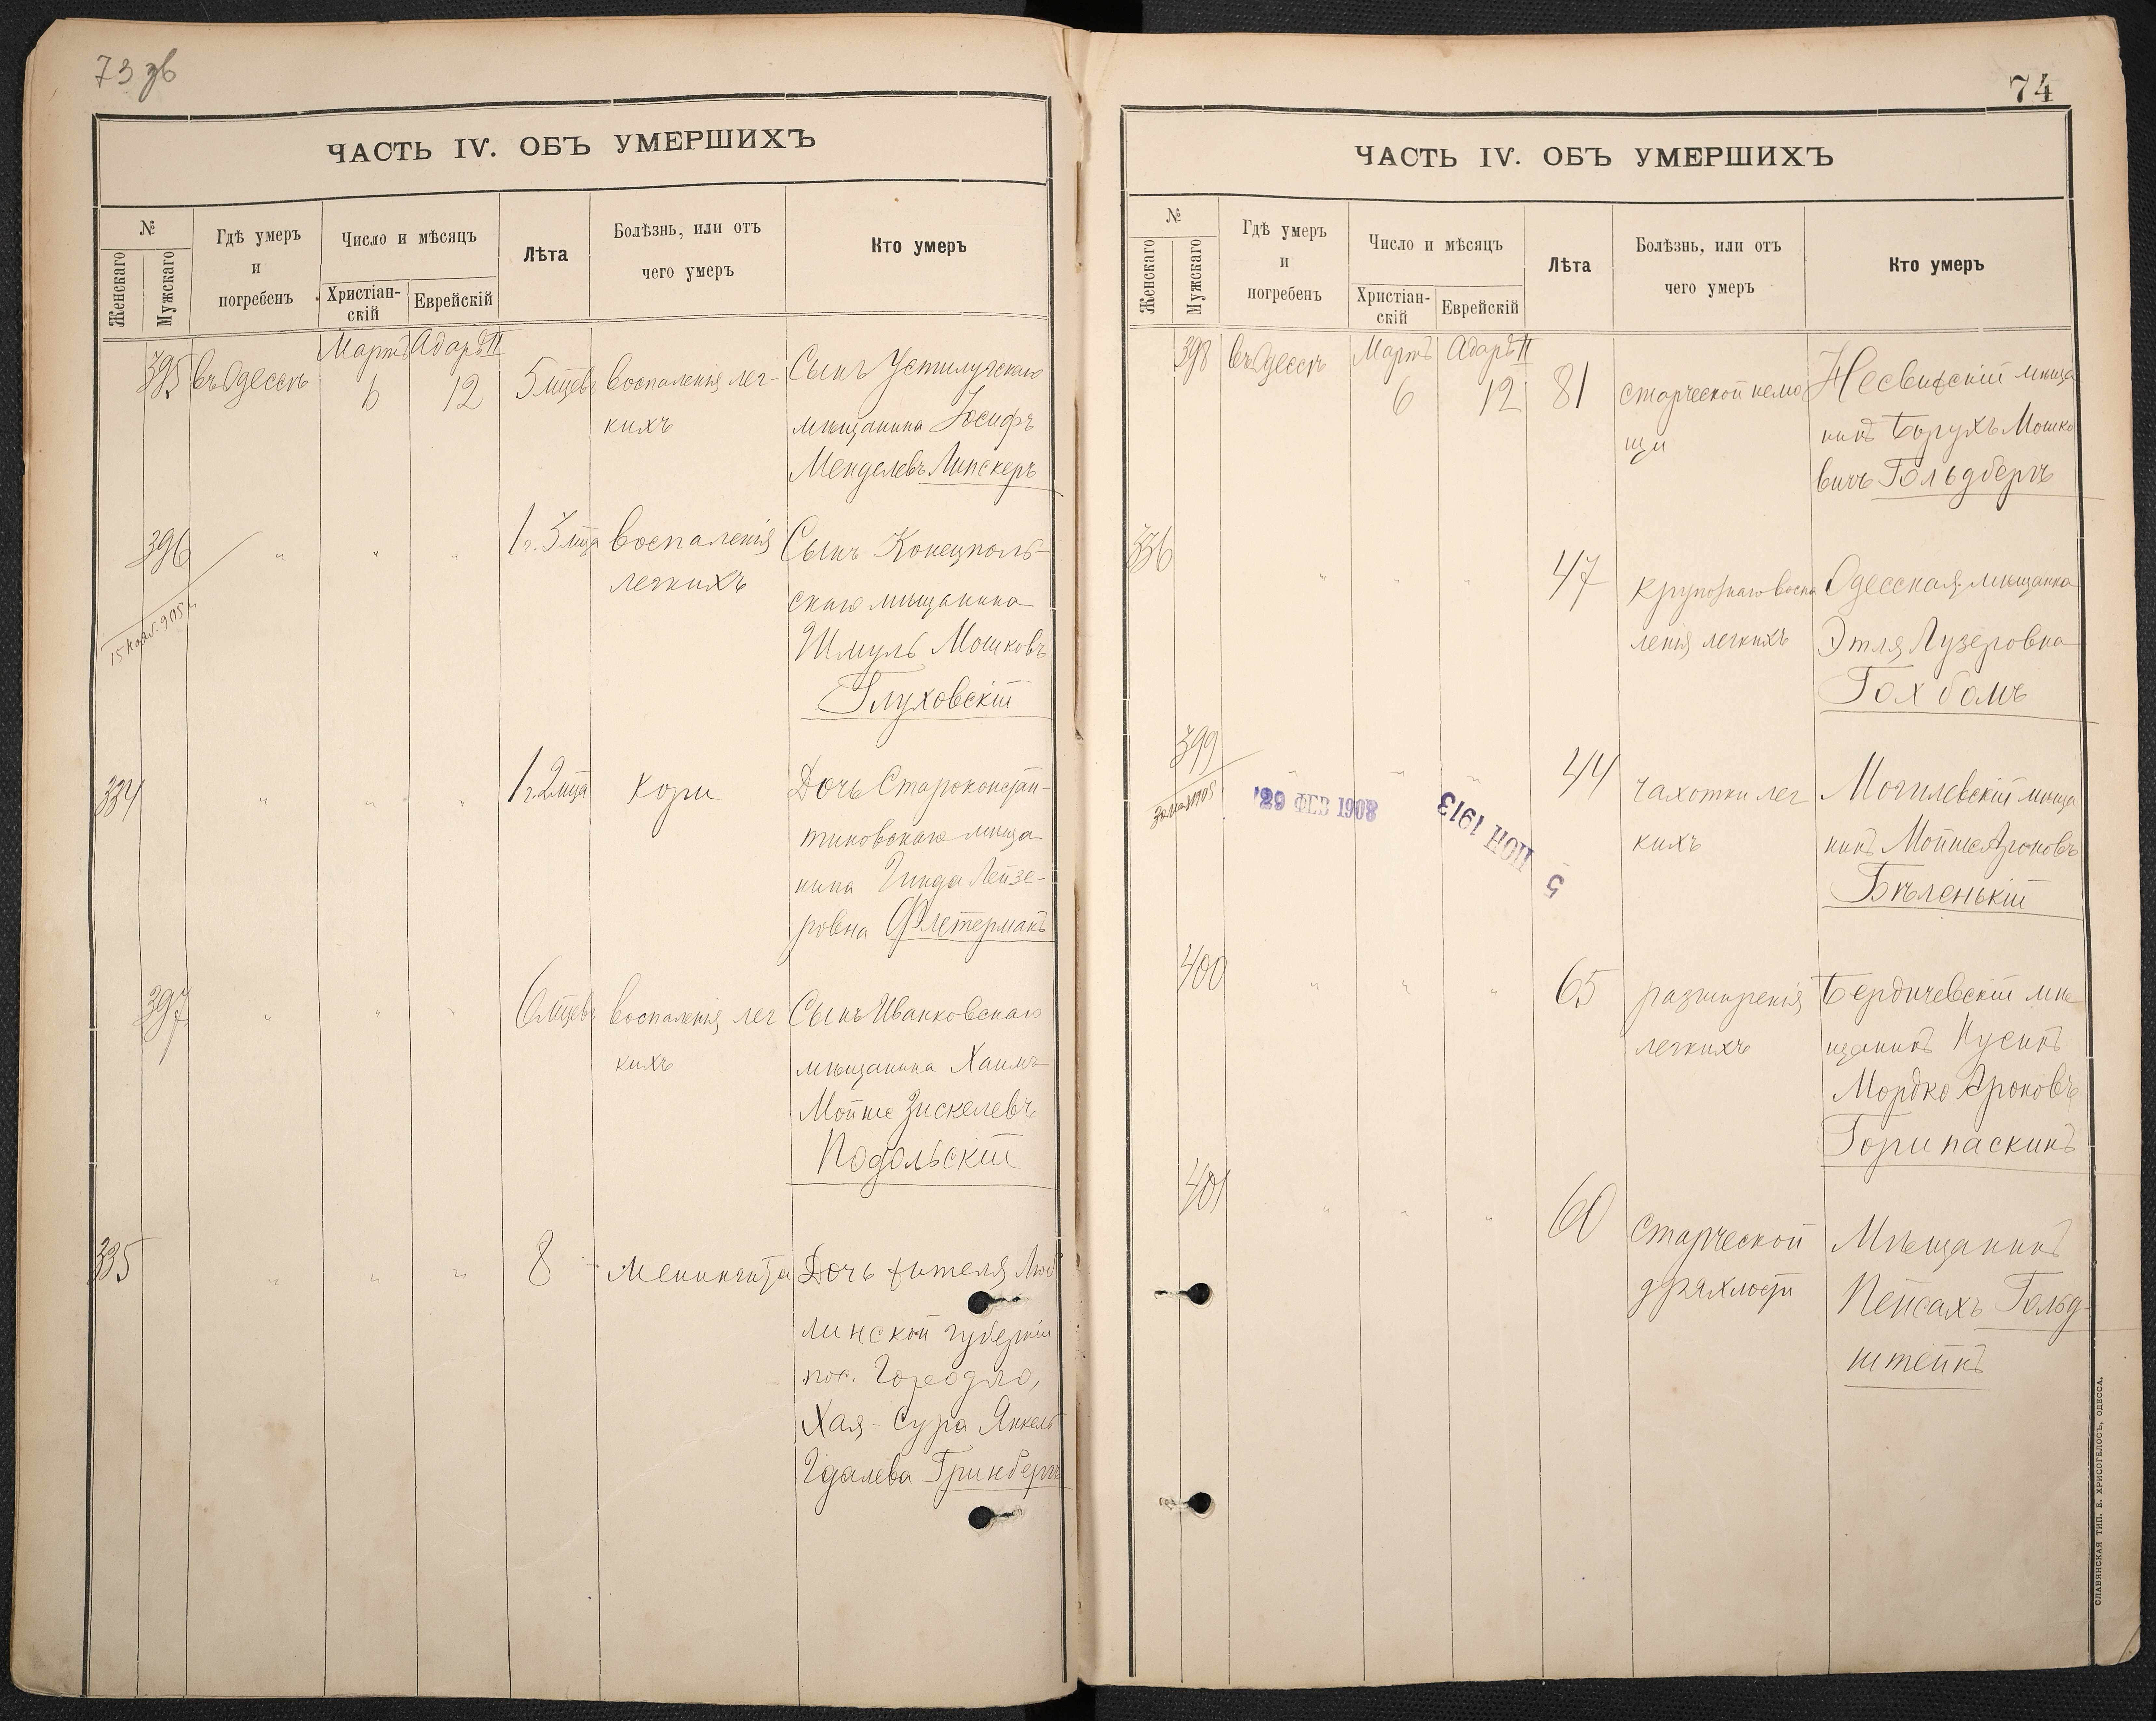 73 зв
ЧАСТЬ IV. ОБЪ УМЕРШИХЪ
№
Женскаго
Мужскаго
Гдѣ умеръ
и
погребенъ
Число и мѣсяцъ
Христіан-
скій
Еврейскій
Лѣта
Болѣзнь, или отъ
чего умеръ
Кто умеръ
395 въ Одессѣ Мартъ 6 Адаръ II 12 5 мцевъ
воспаленія лег-
кихъ
Сынъ Устилугскаго
мѣщанина Іосифъ
Менделевъ Липскеръ
396 " " " 1 г. 3 мца
15 нояб. 905 г.
воспаленія
легкихъ
Сынъ Конецполь-
скаго мѣщанина
Шмуль Мошковъ
Глуховскій
334 " " " 1 г. 2 мца
Кори
Дочь Староконстан-
тиновскаго мѣща
нина Гинда Лейзе-
ровна Флетерманъ
397 " " " 6 мцевъ
воспаленія лег
кихъ
Сынъ Иванковскаго
мѣщанина Хаимъ
Мойше Зискелевъ
Подольскій
335 " " " 8
Менингита
Дочь жителя Люб
линской губерніи
пос. Городло,
Хая-Сура Янкель
Гдалева Гринбергъ
74
ЧАСТЬ IV. ОБЪ УМЕРШИХЪ
№
Женскаго
Мужскаго
Гдѣ умеръ
и
погребенъ
Число и мѣсяцъ
Христіан-
скій
Еврейскій
Лѣта
Болѣзнь, или отъ
чего умеръ
Кто умеръ
398 въ Одессѣ Мартъ 6 Адаръ II 12 81
старческой немо
щи
Несвижскій мѣща
нинъ Борухъ Мошко
вичъ Гольдбергъ
336 " " " 47
крупознаго воспа
ленія легкихъ
Одесская мѣщанка
Этля Лузеровна
Гохбомъ
399 " " " 44
29 ФЕВ 1908
5 ІЮН 1913
чахотки лег
кихъ
Могилевскій мѣща
нинъ Мойше Ароновъ
Бѣленькій
400 " " " 65
разширенія
легкихъ
Бердичевскій мѣ
щанинъ Нусинъ
Мордко Ароновъ
Горипаскинъ
401 " " " 60
Старческой
дряхлости
Мѣщанинъ
Пейсахъ Гольд-
штейнъ
СЛАВЯНСКАЯ ТИП. Е. ХРИСОГЕЛОСЪ, ОДЕССА.